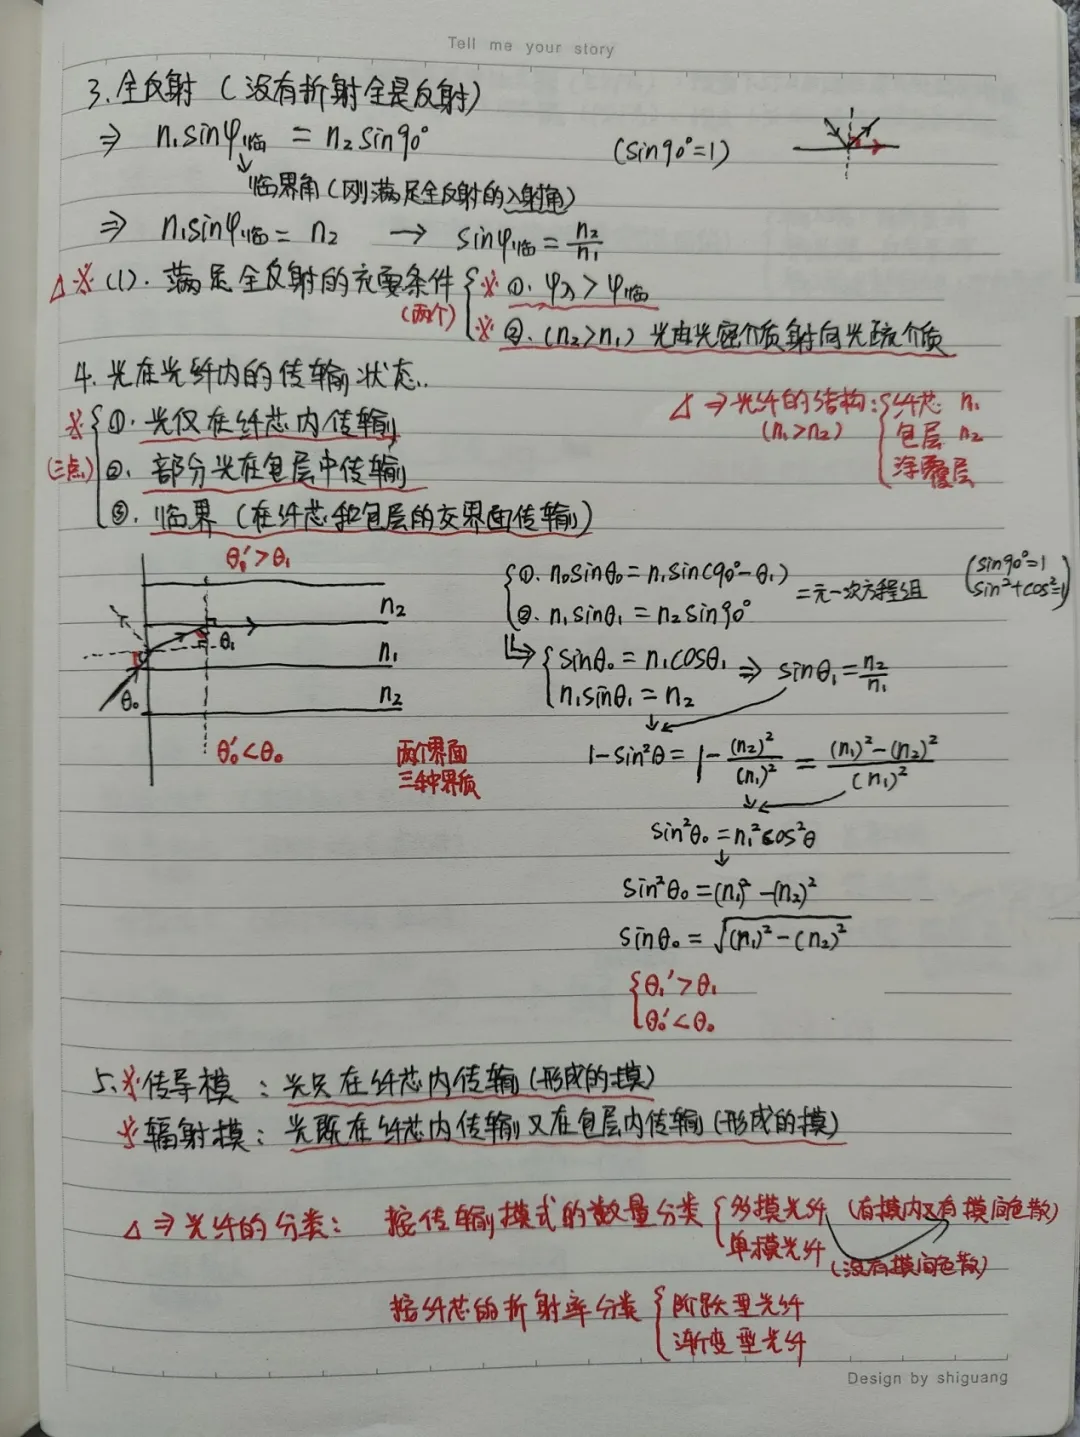 Tell me your story
3. 全反射 (没有折射全是反射)
⇒ n₁sinφ临 = n₂sin90° (sin90°=1)
↓
临界角(刚满足全反射的入射角)
⇒ n₁sinφ临 = n₂ → sinφ临 = n₂/n₁
△※(1). 满足全反射的充要条件 { ※ ①. φ入 > φ临
(两个) ※ ②. (n₂>n₁) 光由光密介质射向光疏介质
4. 光在光纤内的传输状态..
△ ⇒ 光纤的结构: { 纤芯 n₁
(n₁>n₂) 包层 n₂
涂覆层
※ { ①. 光仅在纤芯内传输
(三点) ②. 部分光在包层中传输
③. 临界 (在纤芯和包层的交界面传输)
θ₁′>θ₁
n₂
θ₁
n₁
θ₀
n₂
θ₀′<θ₀
两个界面
三种界质
{ ①. n₀sinθ₀ = n₁sin(90°-θ₁)
②. n₁sinθ₁ = n₂sin90°
=元一次方程组
(sin90°=1
sin²+cos²=1)
↳ { sinθ₀ = n₁cosθ₁ ⇒ sinθ₁ = n₂/n₁
n₁sinθ₁ = n₂
1-sin²θ = 1-(n₂)²/(n₁)² = (n₁)²-(n₂)²/(n₁)²
sin²θ₀ = n₁²cos²θ
↓
sin²θ₀ = (n₁)²-(n₂)²
sinθ₀ = √(n₁)²-(n₂)²
{ θ₁′>θ₁
θ₀′<θ₀
5. ※传导模: 光只在纤芯内传输(形成的模)
※辐射模: 光既在纤芯内传输又在包层内传输(形成的模)
△ ⇒ 光纤的分类: 按传输模式的数量分类 { 多模光纤 (有模内又有模间色散)
单模光纤 (没有模间色散)
按纤芯的折射率分类 { 阶跃型光纤
渐变型光纤
Design by shiguang